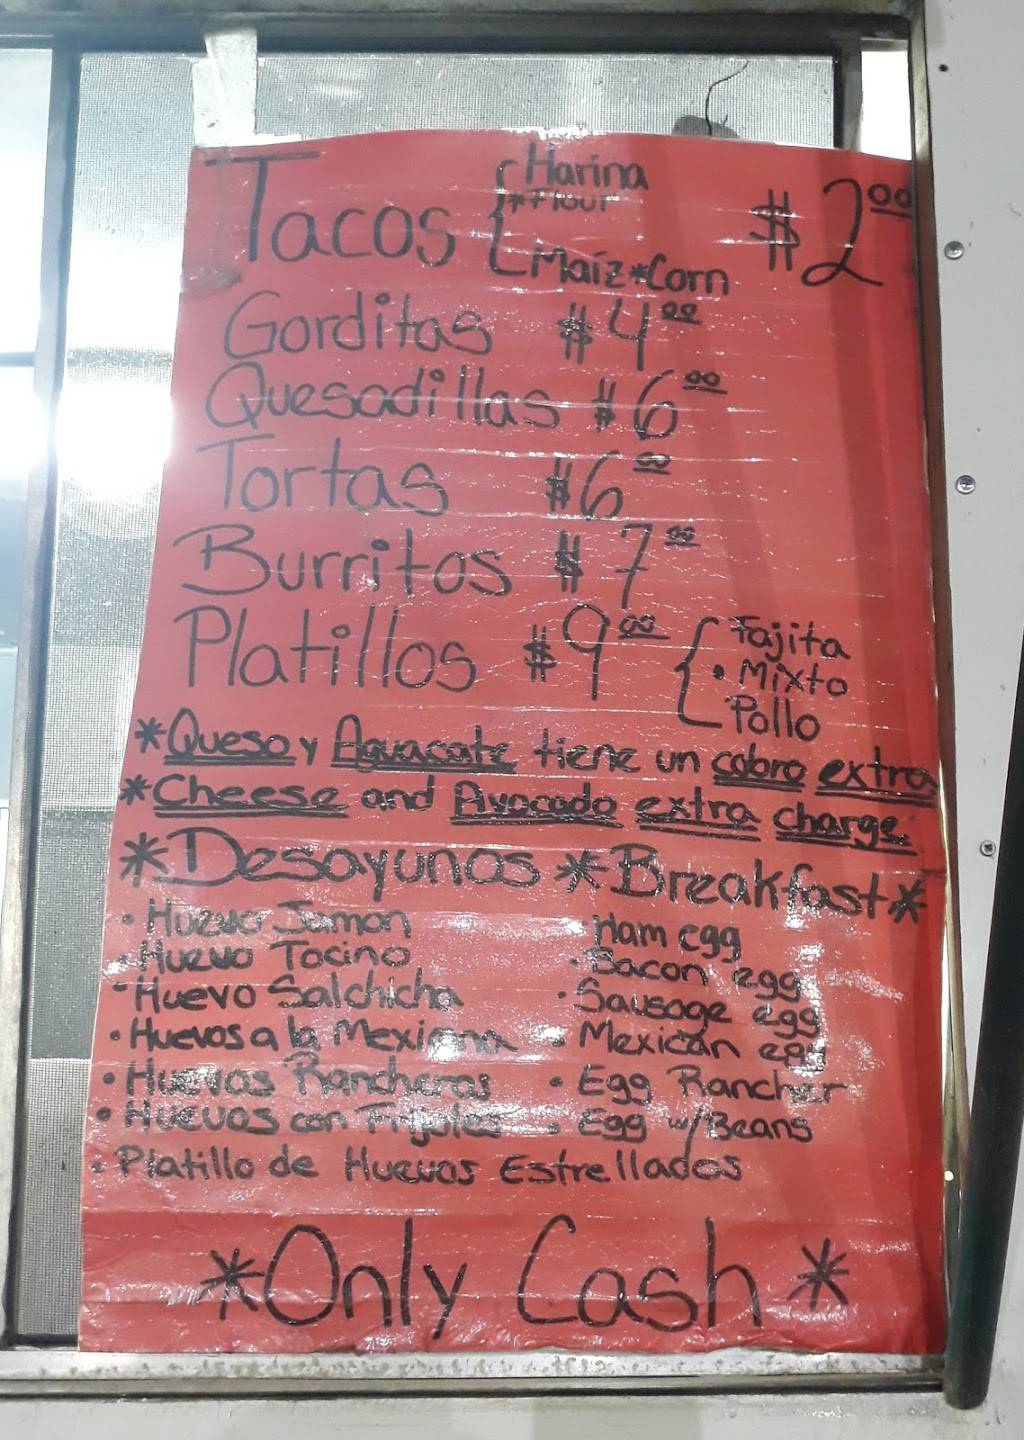 Tacos { Harina $2.00
*Flour
Maíz*Corn
Gorditas $4.00
Quesadillas $6.00
Tortas $6.00
Burritos $7.00
Platillos $9.00 { Fajita
• Mixto
Pollo
*Queso y Aguacate tiene un cobro extra
*Cheese and Avocado extra charge
*Desayunos *Breakfast*
• Huevo Jamon • Ham egg
• Huevo Tocino • Bacon egg
• Huevo Salchicha • Sausage egg
• Huevos a la Mexicana • Mexican egg
• Huevos Rancheros • Egg Rancher
• Huevos con Frijoles • Egg w/Beans
• Platillo de Huevos Estrellados
*Only Cash*